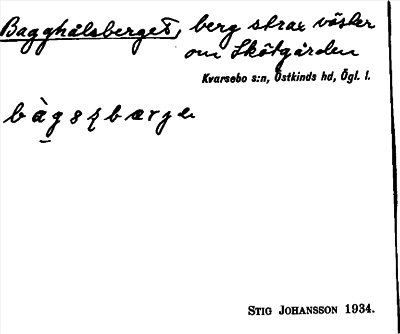 Bagghålsberget, berg strax väster
om Skötgården
Kvarsebo s:n, Östkinds hd, Ögl. l.
STIG JOHANSSON 1934.